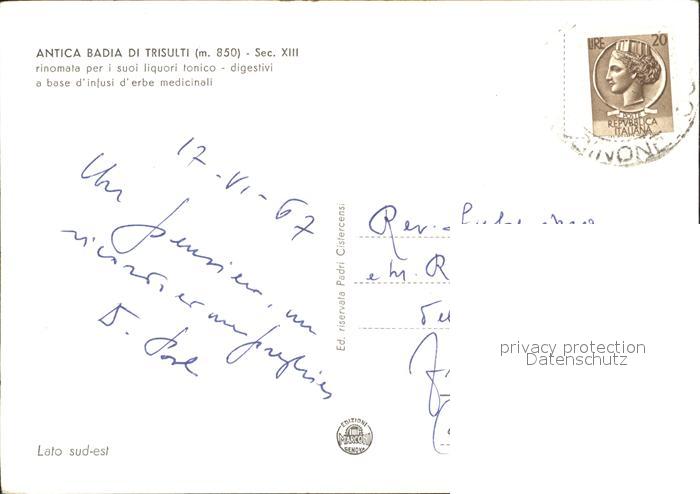 ANTICA BADIA DI TRISULTI (m. 850) - Sec. XIII
rinomata per i suoi liquori tonico - digestivi
a base d'infusi d'erbe medicinali
LIRE 20
POSTE
REPVBBLICA
ITALIANA
17-VI-67
Un pensiero, un
ricordo, e una preghiera
D.
Ed. riservata Padri Cistercensi
Rev.
e M. R
privacy protection
Datenschutz
EDIZIONI
MARCONI
GENOVA
Lato sud-est